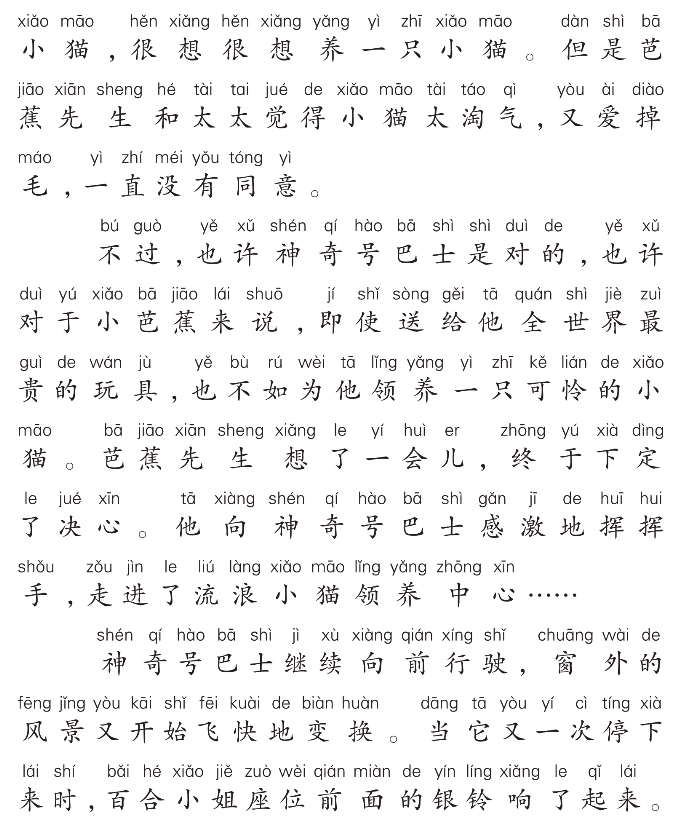 xiǎo māo hěn xiǎng hěn xiǎng yǎng yì zhī xiǎo māo dàn shì bā
小猫，很想很想养一只小猫。但是芭
jiāo xiān sheng hé tài tai jué de xiǎo māo tài táo qì yòu ài diào
蕉先生和太太觉得小猫太淘气，又爱掉
máo yì zhí méi yǒu tóng yì
毛，一直没有同意。
bú guò yě xǔ shén qí hào bā shì shì duì de yě xǔ
不过，也许神奇号巴士是对的，也许
duì yú xiǎo bā jiāo lái shuō jí shǐ sòng gěi tā quán shì jiè zuì
对于小芭蕉来说，即使送给他全世界最
guì de wán jù yě bù rú wèi tā lǐng yǎng yì zhī kě lián de xiǎo
贵的玩具，也不如为他领养一只可怜的小
māo bā jiāo xiān sheng xiǎng le yí huì er zhōng yú xià dìng
猫。芭蕉先生想了一会儿，终于下定
le jué xīn tā xiàng shén qí hào bā shì gǎn jī de huī hui
了决心。他向神奇号巴士感激地挥挥
shǒu zǒu jìn le liú làng xiǎo māo lǐng yǎng zhōng xīn
手，走进了流浪小猫领养中心……
shén qí hào bā shì jì xù xiàng qián xíng shǐ chuāng wài de
神奇号巴士继续向前行驶，窗外的
fēng jǐng yòu kāi shǐ fēi kuài de biàn huàn dāng tā yòu yí cì tíng xià
风景又开始飞快地变换。当它又一次停下
lái shí bǎi hé xiǎo jiě zuò wèi qián miàn de yín líng xiǎng le qǐ lái
来时，百合小姐座位前面的银铃响了起来。